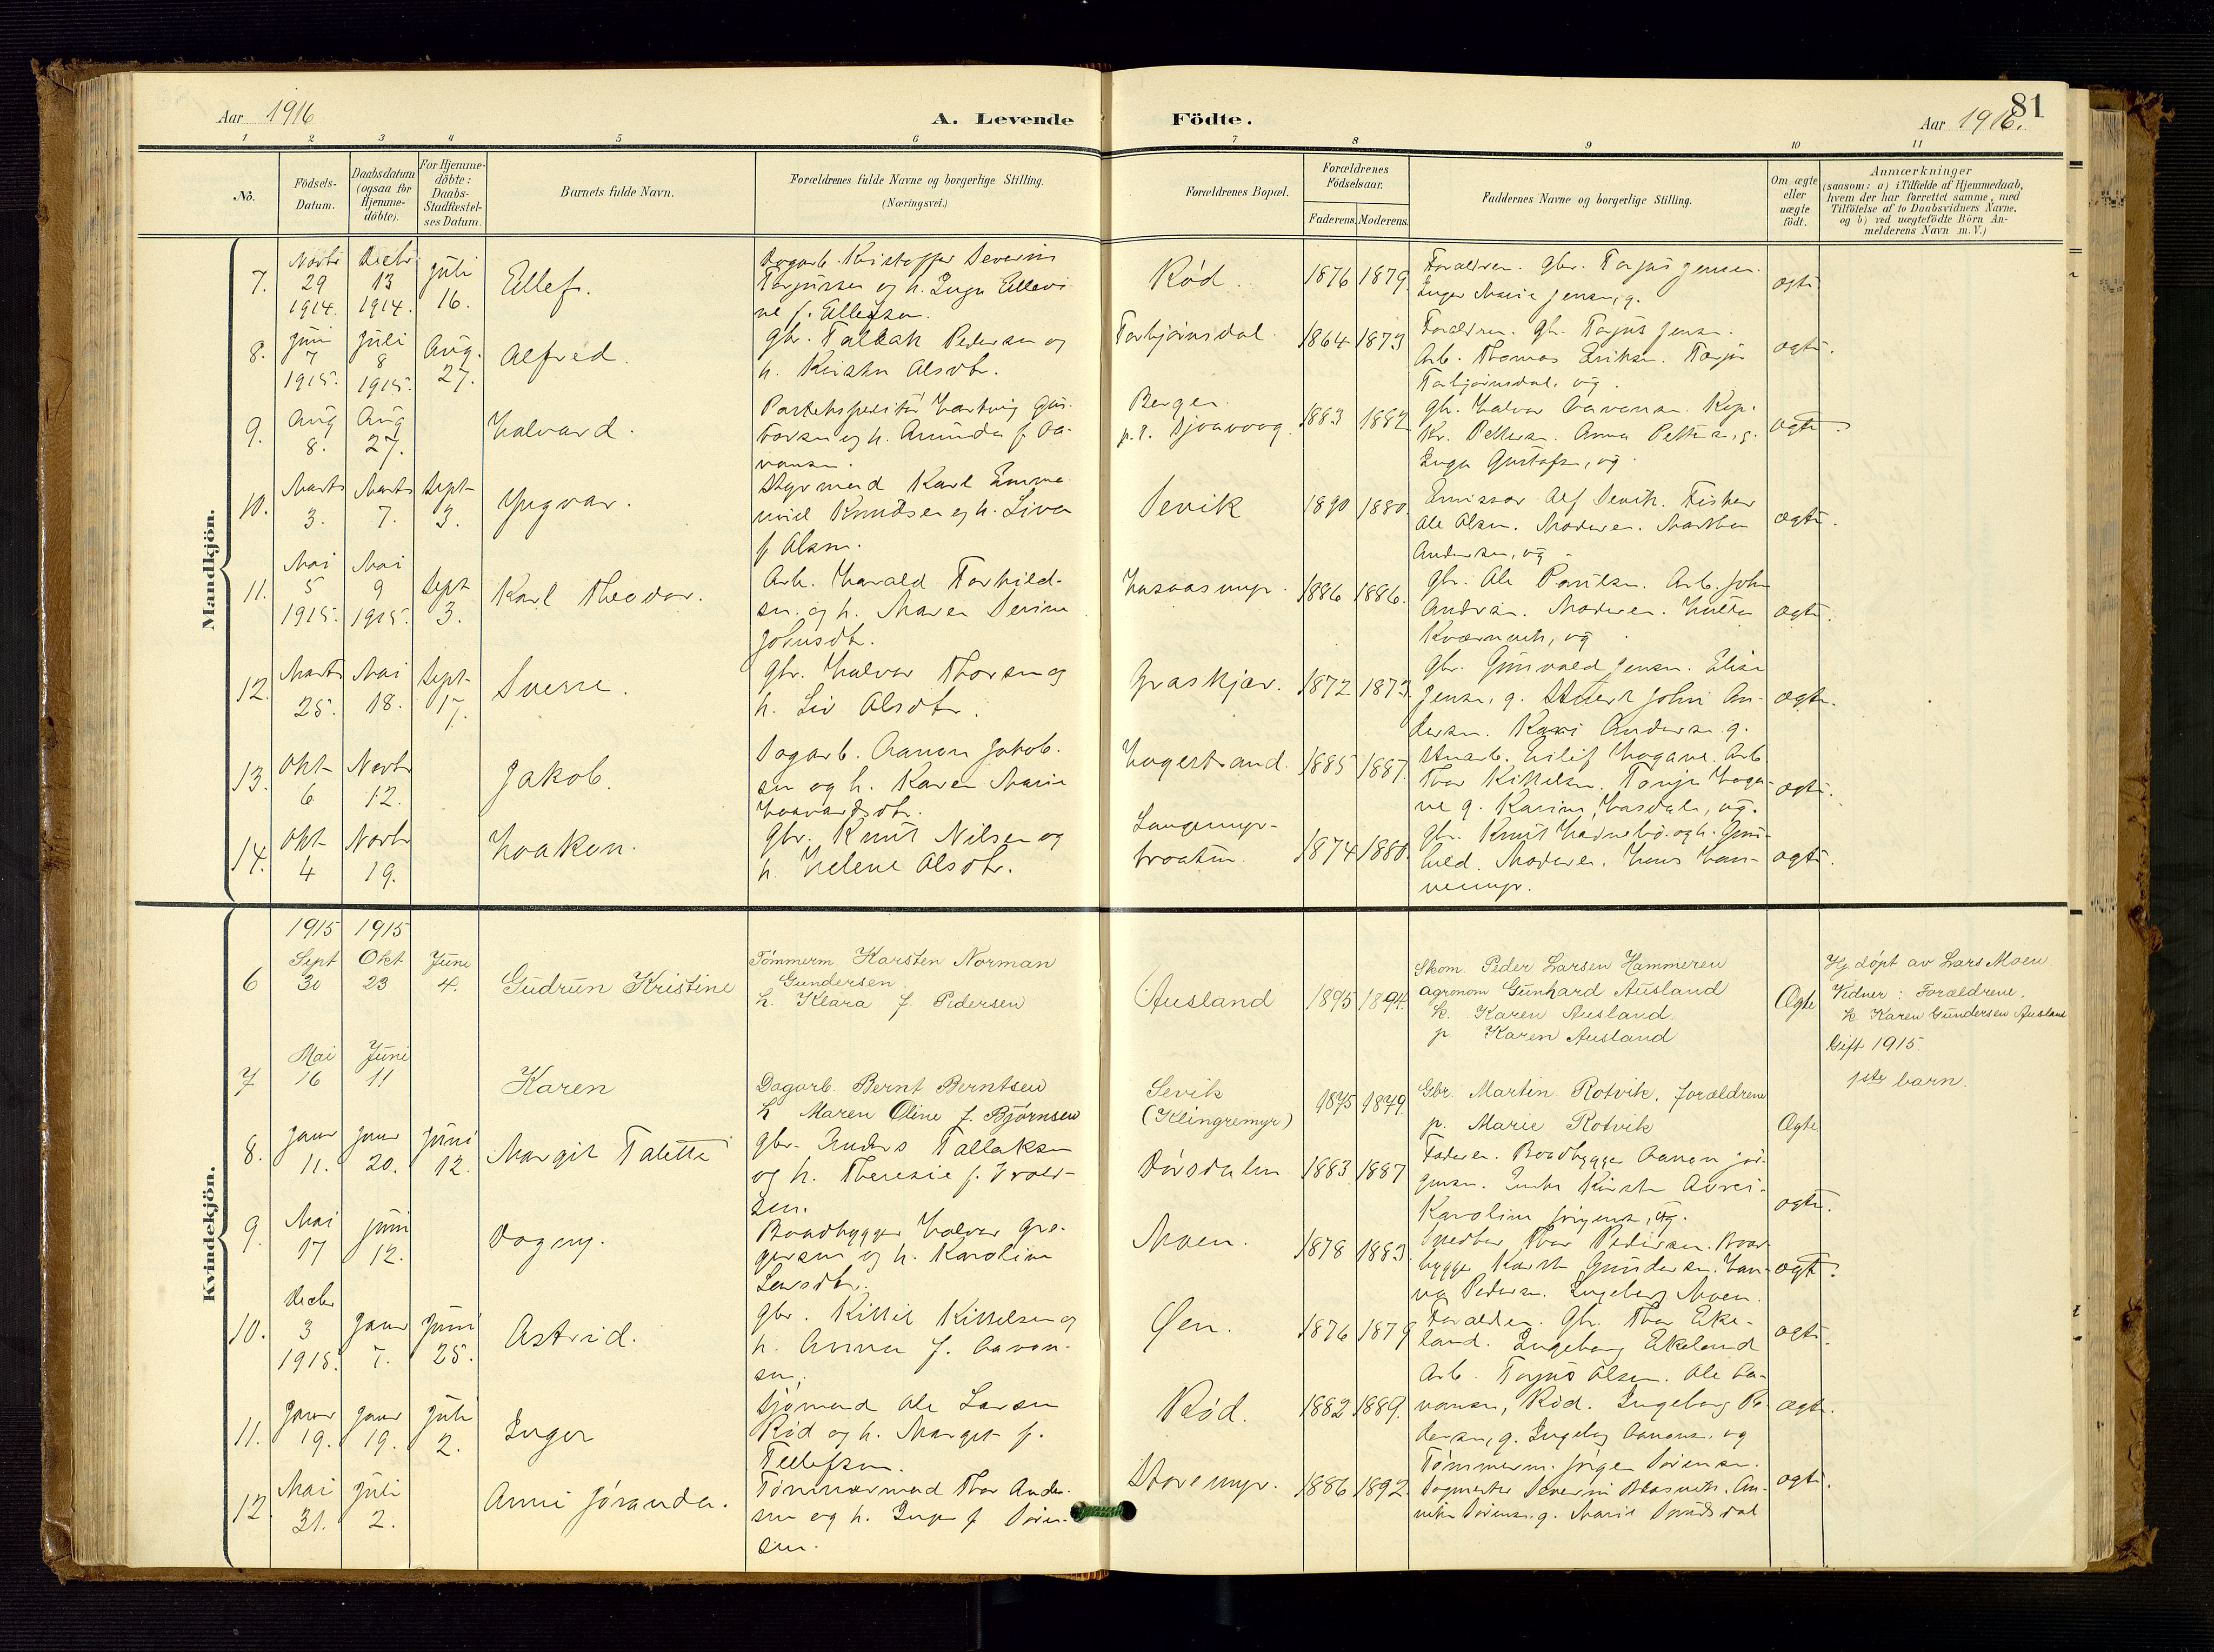 81
Aar 1916
A. Levende
Födte.
Aar 1916.
1 2 3 4 5 6 7 8 9 10 11
No.
Födsels-
Datum.
Daabsdatum
(ogsaa for
Hjemme-
döbte).
For Hjemme-
döbte:
Daabs-
Stadfæstel-
ses Datum.
Barnets fulde Navn.
Forældrenes fulde Navne og borgerlige Stilling.
(Næringsvei.)
Forældrenes Bopæl.
Forældrenes
Födselsaar.
Faderens. Moderens.
Faddernes Navne og borgerlige Stilling.
Om ægte
eller
uægte
födt.
Anmærkninger
(saasom: a) i Tilfælde af Hjemmedaab,
hvem der har forrettet samme, med
Tilföielse af to Daabsvidners Navne,
og b) ved uægtefödte Börn An-
melderens Navn m. V.)
Mandkjön.
7.
Novbr
29
1914.
Decbr
13
1914.
Juli
16.
Ellef.
Dagarb. Kristoffer Severin
Terjussen og h. Inga Ellevi-
ne f. Ellefsen.
Rød.
1876 1879.
Forældren. Gbr. Torjus Jensen.
Inger Marie Jensen, g.
ægte.
8.
Juni
7
1915.
Juli
8
1915.
Aug.
27.
Alfred.
Gbr. Tallak Pedersen og
h. Kirsten Olsdtr.
Torbjørnsdal.
1864 1873
Forældren. Gbr. Torjus Jensen.
Arb. Thomas Eriksen.
Torbjørnsdal, ug.
ægte.
9.
Aug
8.
Aug
27.
Halvard.
Hartvig Gus-
tavsen og h. Amunda f. Aa-
nonsen.
Bergen.
1883 1882
Gbr. Halvor Aanonsen. Kap.
Kr. Pettersen. Anna Pettersen, g.
Inga Gustafsen, ug.
ægte.
10.
Marts
3.
Marts
7.
Sept
3.
Yngvar.
Styrmand Karl Emma-
nuel Knudsen og h. Lina
f. Olsen.
Sevik
1890 1880.
Emissær Alf Sevik. Fisker
Ole Olsen. Moderen. Marthea
Andersen, ug.
ægte.
11.
Mai
5
1915.
Mai
9
1915.
Sept
3.
Karl Theodor.
Arb. Harald Torkild-
sen og h. Maren Severine
Johnsdtr.
Hasaasmyr.
1886 1886.
Gbr. Ole Poulsen. Arb. John
Andersen. Moderen. Hulda
Kværnvik, ug.
ægte.
12.
Marts
25.
Mai
18.
Sept
17.
Sverre.
Gbr. Halvor Thorsen og
h. Liv Olsdtr.
Graskjær.
1872 1873.
Gbr. Gunvald Jensen. Elise
Jensen, g. John An-
dersen. Kari Andersen g.
ægte.
13.
Okt
6
Novbr
12.
Jakob.
Dagarb. Aanon Jakob-
sen og h. Karen Marie
Haavardsdtr.
Hagestrand.
1885 1887.
Eilif Hagane. Arb.
Thor Kittelsen. Tonje Haga-
ne g. Karine Hasdalen, ug.
ægte.
14.
Okt
4
Novbr
19.
Haakon.
Gbr. Knut Nilsen og
h. Helene Olsdtr.
Langemyr-
braaten.
1874 1880.
Gbr. Knut Harnebø og h. Gun-
hild. Moderen. Hans Han-
nemyr.
ægte.
Kvindekjön.
6
1915
Sept
30
1915
Okt
23
Juni
4.
Gudrun Kristine
Tømmerm. Karsten Norman
Gundersen
h. Klara f. Pedersen
Ausland
1895 1894.
Skom. Peder Larsen Hammeren
Agronom Gunhard Ausland
h. Karen Ausland.
p. Karen Ausland
Ægte
Hj. døpt av Lars Moen.
Vidner: Forældrene,
h. Karen Gundersen Ausland
Gift 1915.
1ste barn.
7
Mai
16
Juni
11
Karen
Dagarb. Bernt Berntsen
h. Maren Oline f. Bjørnsen
Sevik
(Klingremyr)
1875 1879.
Gbr. Martin Rotvik, forældrene
p. Marie Rotvik
Ægte
8.
Janr
11.
Janr
20.
Juni
12.
Margit Talette
Gbr. Anders Tallaksen
og h. Theresie f. Ivers-
sen.
Dørsdalen
1883 1887
Faderen. Baadbygger Aanon Jør-
gensen.
Karoline Jørgensen, ug.
ægte.
9.
Mai
17
Juni
12.
Dagny.
Baadbygger Halvor Gre-
gersen og h. Karoline
Larsdtr.
Moen.
1878 1883.
Thor Pedersen. Baad-
bygger Karsten Gundersen. Han-
na Pedersen. Ingeborg Moen.
ægte.
10.
Decbr
3
1915.
Janr
7.
Juni
25.
Astrid.
Gbr. Kittil Kittelsen og
h. Anna f. Aanon-
sen.
Øen.
1876 1879
Forældren. Gbr. Thor Eke-
land. Ingeborg Ekeland
ægte.
11.
Janr
19.
Janr
19.
Juli
2.
Inger
Sjømand Ole Larsen
Rød og h. Margit f.
Tellefsen.
Rød.
1882 1889.
Arb. Torjus Olsen. Ole Aa-
nonsen, Rød. Ingeborg Pe-
dersen, g. Ingeborg Aanonsen, ug
ægte.
12.
Mai
31.
Juli
2.
Anni Jøranda.
Tømmermand Thor Ander-
sen og h. Inga f. Søren-
sen.
Storemyr.
1886 1892.
Tømmerm. Jørgen Sørensen.
Severin An-
nette Sørensen, g. Marie
ægte.